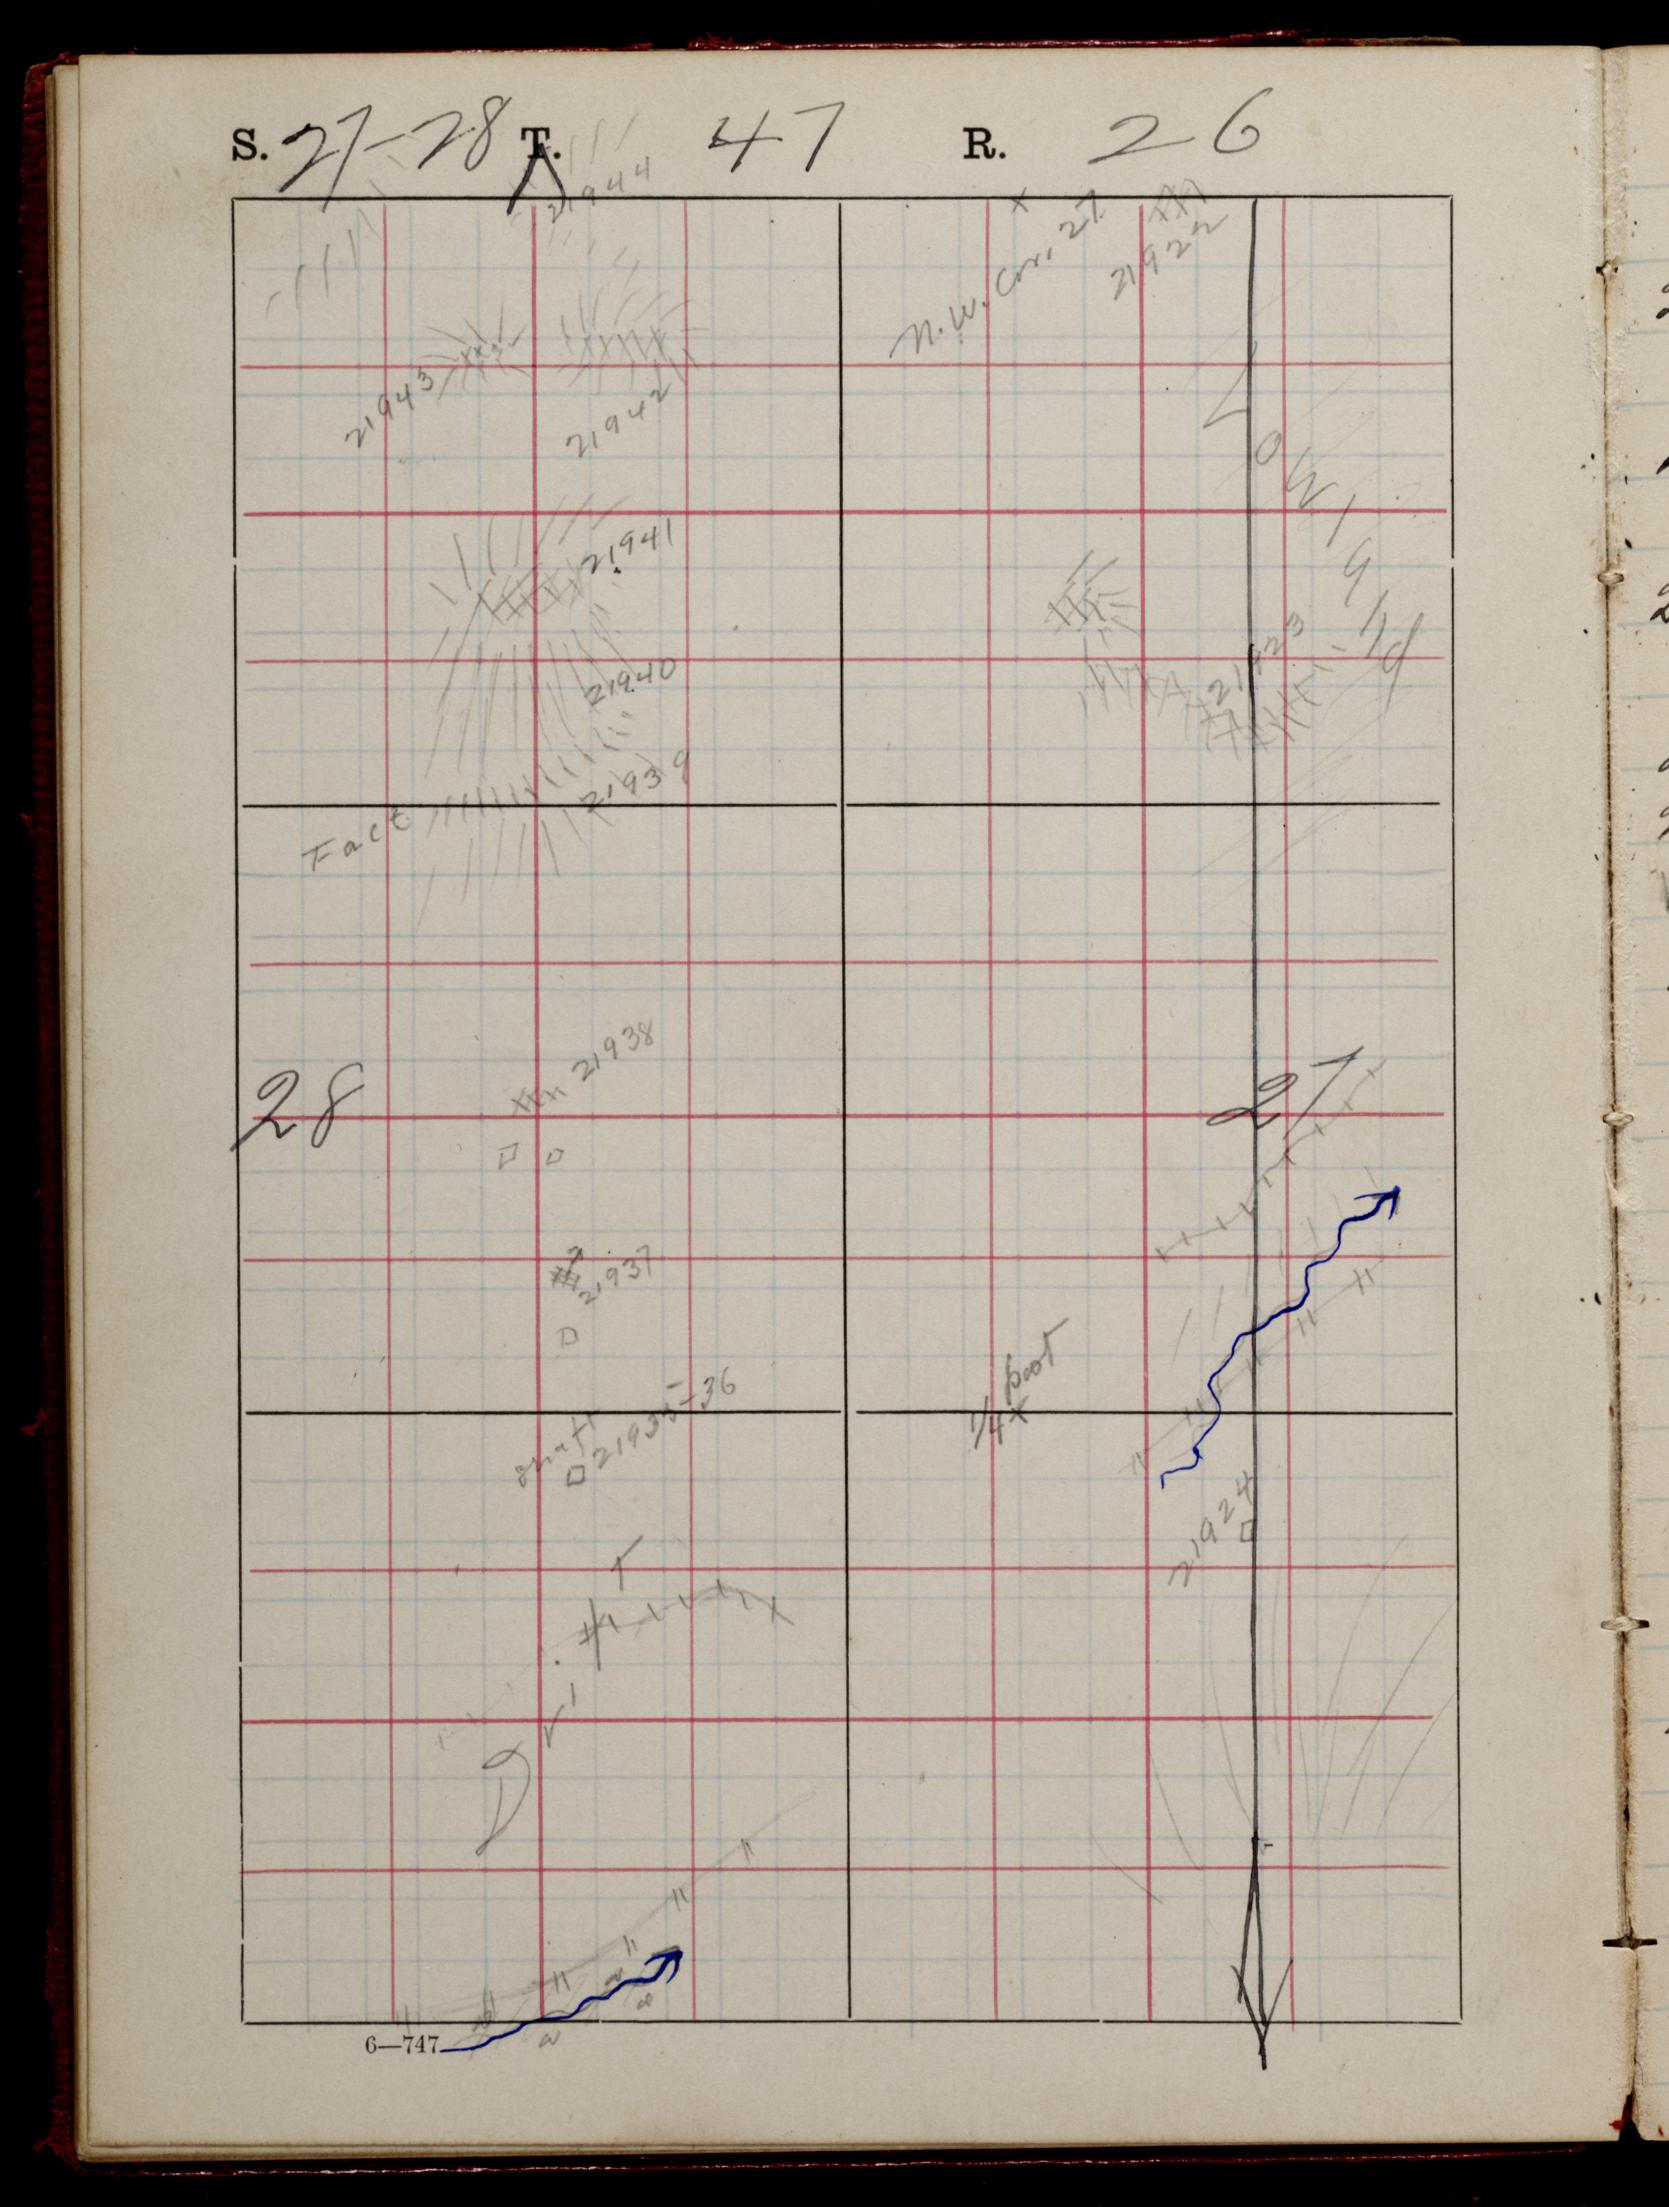 S. 27-28 T. 47 R. 26
21944
N.W. Cor. 27
21922
21943
21942
21941
21923
21940
21939
Fact
21938
28
27
21937
1/4 post
21935-36
shaft
21924
Drift
6—747